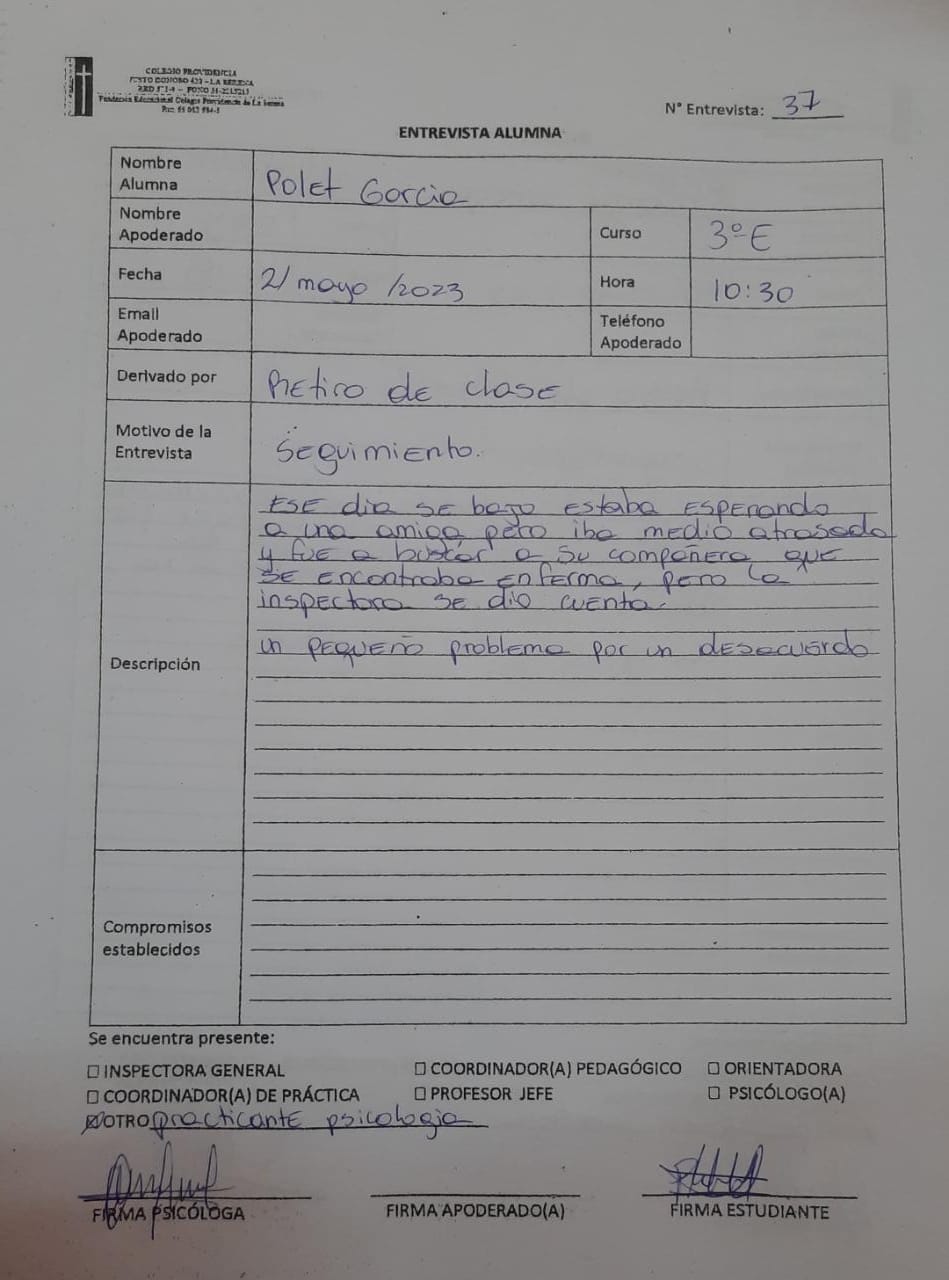 COLEGIO PROVIDENCIA
JUSTO DONOSO 420 - LA SERENA
Fundación Educacional Colegio Providencia de La Serena
N° Entrevista: 37
ENTREVISTA ALUMNA
Nombre Alumna Polet Garcia
Nombre Apoderado
Curso 3°E
Fecha 2/ mayo /2023
Hora 10:30
Email Apoderado
Teléfono Apoderado
Derivado por Retiro de clase
Motivo de la Entrevista Seguimiento.
Descripción
Ese dia se bajo estaba esperando
a una amiga pero iba medio atrasada
y fue a buscar a su compañera que
se encontraba enferma, pero la
inspectora se dio cuenta.
un pequeño problema por un desacuerdo
Compromisos establecidos
Se encuentra presente:
☐ INSPECTORA GENERAL ☐ COORDINADOR(A) PEDAGÓGICO ☐ ORIENTADORA
☐ COORDINADOR(A) DE PRÁCTICA ☐ PROFESOR JEFE ☐ PSICÓLOGO(A)
☒ OTRO practicante psicologia
FIRMA PSICÓLOGA FIRMA APODERADO(A) FIRMA ESTUDIANTE